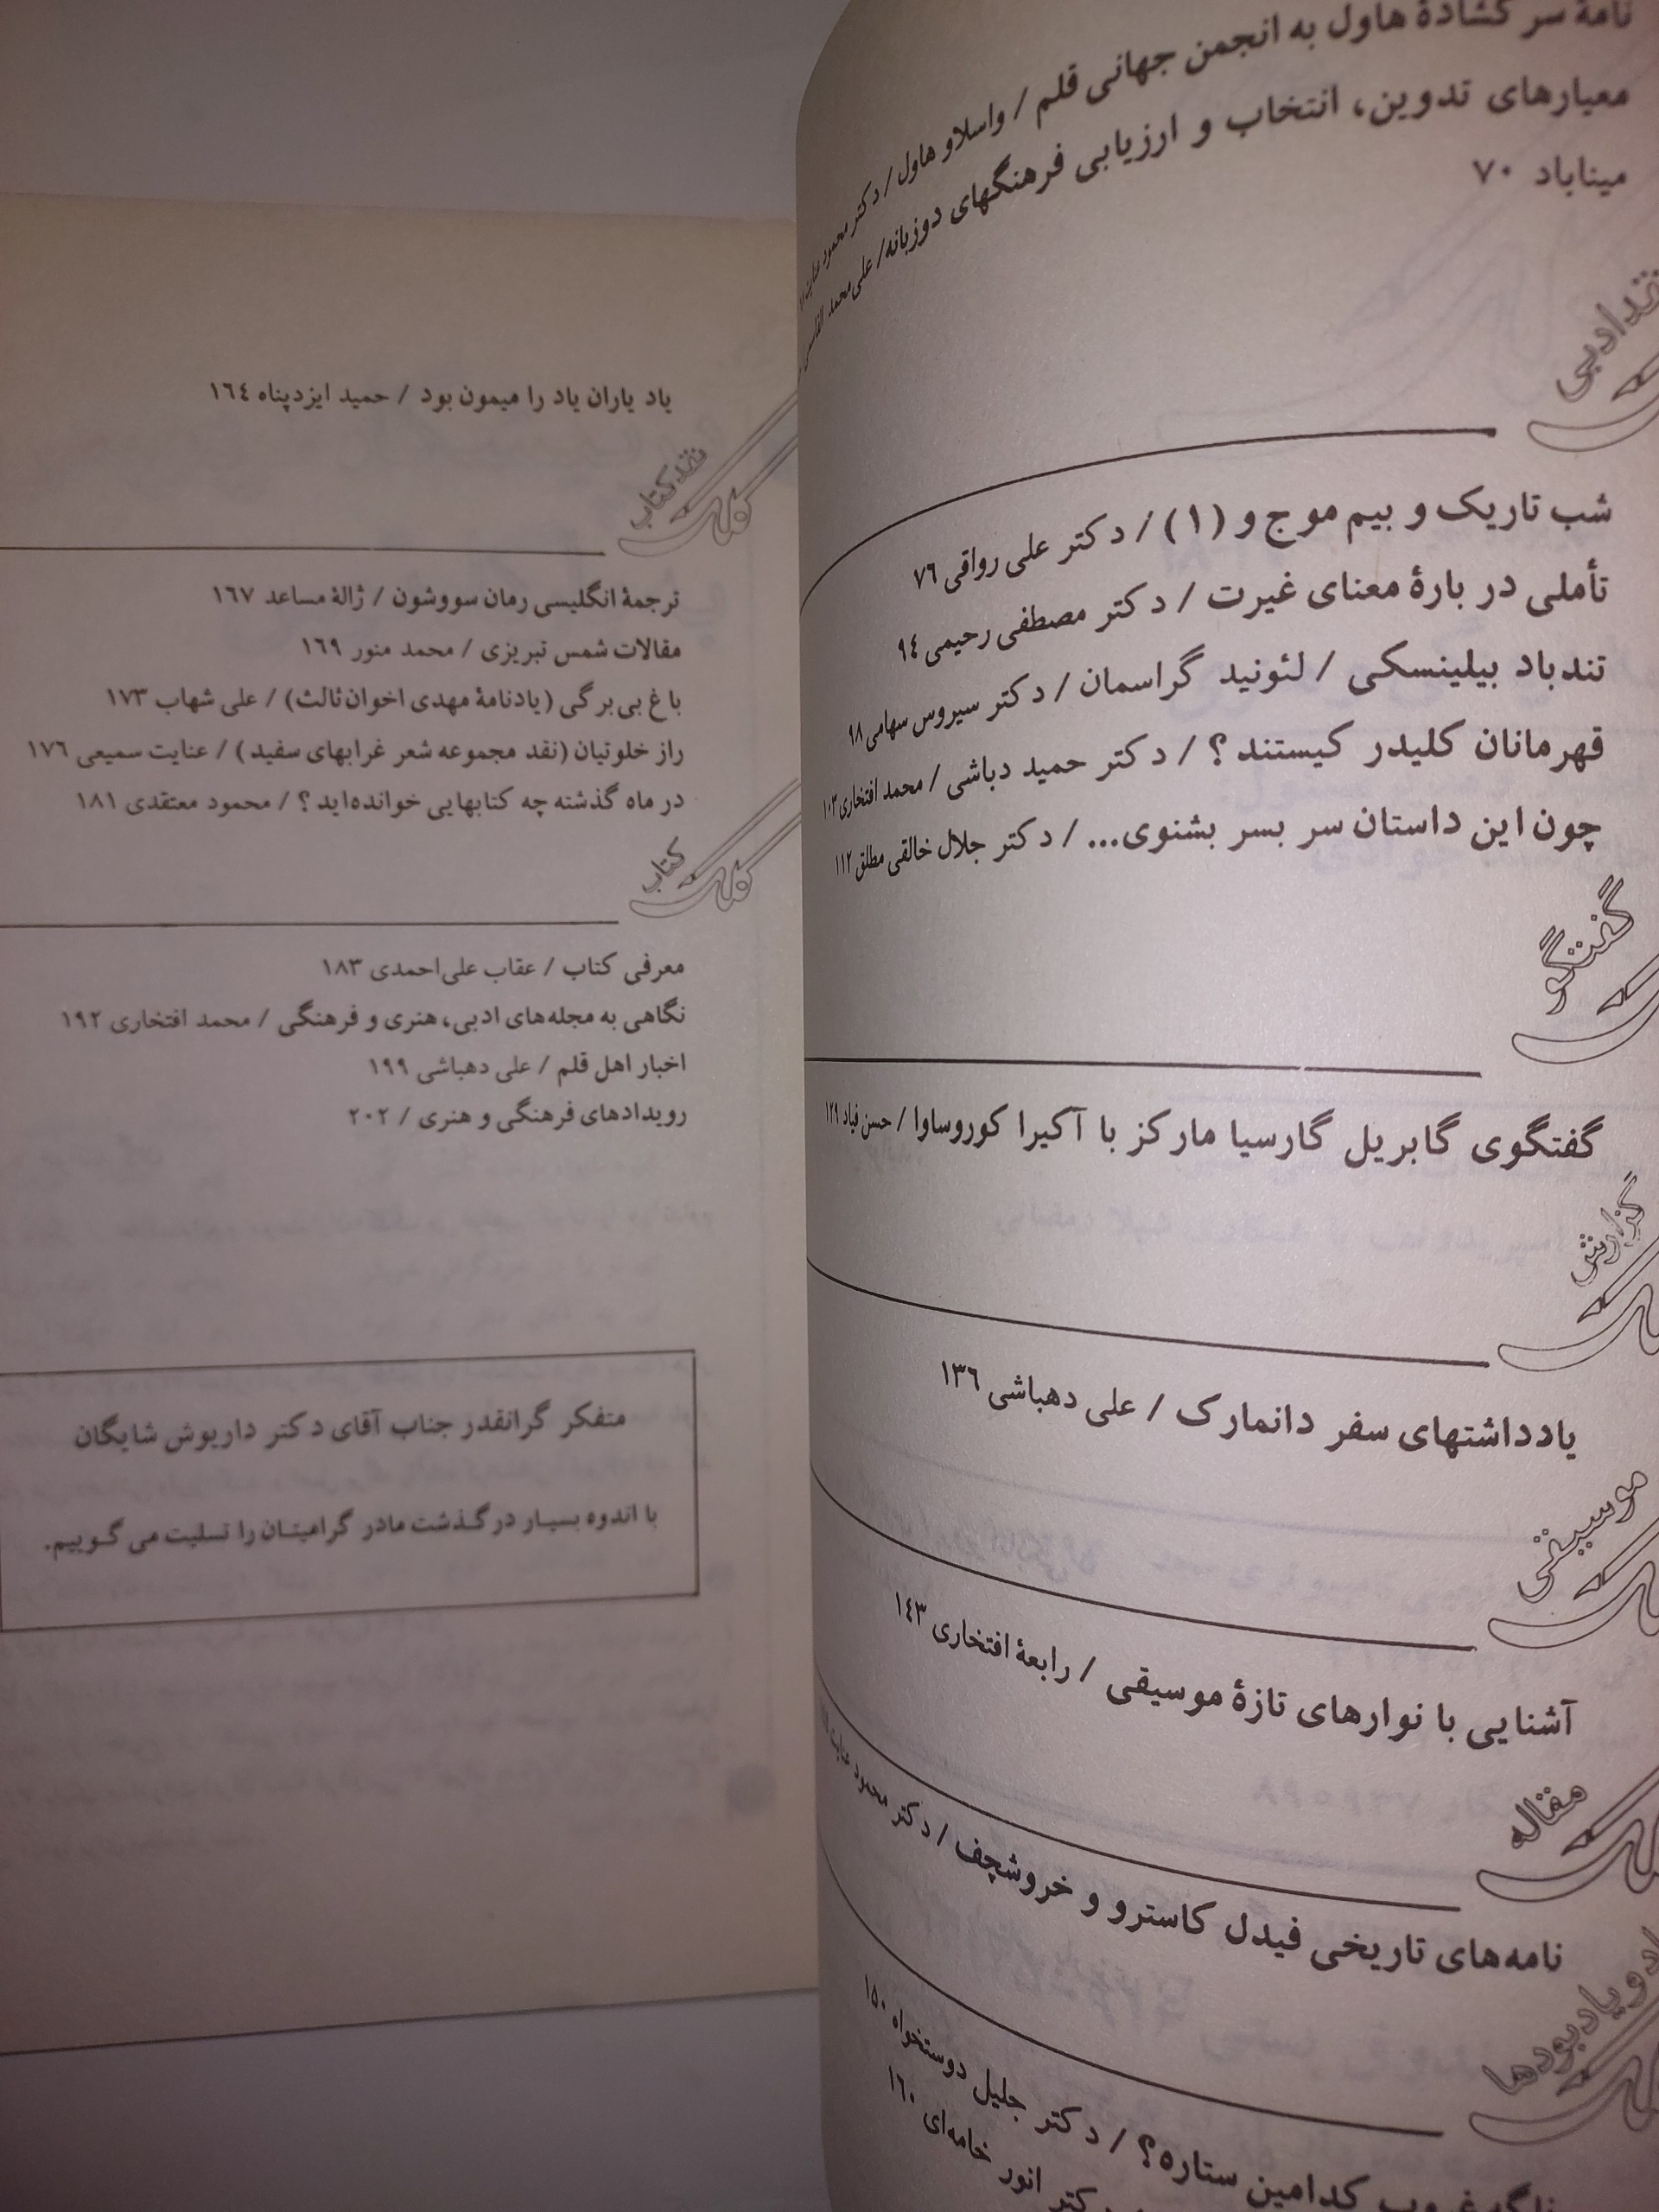 نامهٔ سر گشادهٔ هاول به انجمن جهانی قلم / واسلاو هاول / دکتر محمود
معیارهای تدوین، انتخاب و ارزیابی فرهنگهای دوزبانه / علی محمد
میناباد ۷۰
نقد ادبی
شب تاریک و بیم موج و (۱) / دکتر علی رواقی ۷۶
تأملی در بارهٔ معنای غیرت / دکتر مصطفی رحیمی ۹٤
تندباد بیلینسکی / لئونید گراسمان / دکتر سیروس سهامی ۹۸
قهرمانان کلیدر کیستند؟ / دکتر حمید دباشی / محمد افتخاری ۱۰۲
چون این داستان سر بسر بشنوی... / دکتر جلال خالقی مطلق ۱۱۲
گفتگو
گفتگوی گابریل گارسیا مارکز با آکیرا کوروساوا / حسن فیاد ۱۲۹
گزارش
یادداشتهای سفر دانمارک / علی دهباشی ۱۳٦
موسیقی
آشنایی با نوارهای تازهٔ موسیقی / رابعهٔ افتخاری ۱٤۳
مقاله
نامه‌های تاریخی فیدل کاسترو و خروشچف / دکتر محمود عنایت
یادبودها
غروب کدامین ستاره؟ / دکتر جلیل دوستخواه ۱۵۰
دکتر انور خامه‌ای ۱٦۰
یاد یاران یاد را میمون بود / حمید ایزدپناه ۱٦٤
نقد کتاب
کلک
ترجمهٔ انگلیسی رمان سووشون / ژالهٔ مساعد ۱٦۷
مقالات شمس تبریزی / محمد منور ۱٦۹
باغ بی‌برگی (یادنامهٔ مهدی اخوان ثالث) / علی شهاب ۱۷۳
راز خلوتیان (نقد مجموعه شعر غرابهای سفید) / عنایت سمیعی ۱۷٦
در ماه گذشته چه کتابهایی خوانده‌اید؟ / محمود معتقدی ۱۸۱
کتاب
کلک
معرفی کتاب / عقاب علی‌احمدی ۱۸۳
نگاهی به مجله‌های ادبی، هنری و فرهنگی / محمد افتخاری ۱۹۲
اخبار اهل قلم / علی دهباشی ۱۹۹
رویدادهای فرهنگی و هنری / ۲۰۲
متفکر گرانقدر جناب آقای دکتر داریوش شایگان
با اندوه بسیار درگذشت مادر گرامیتان را تسلیت می‌گوییم.